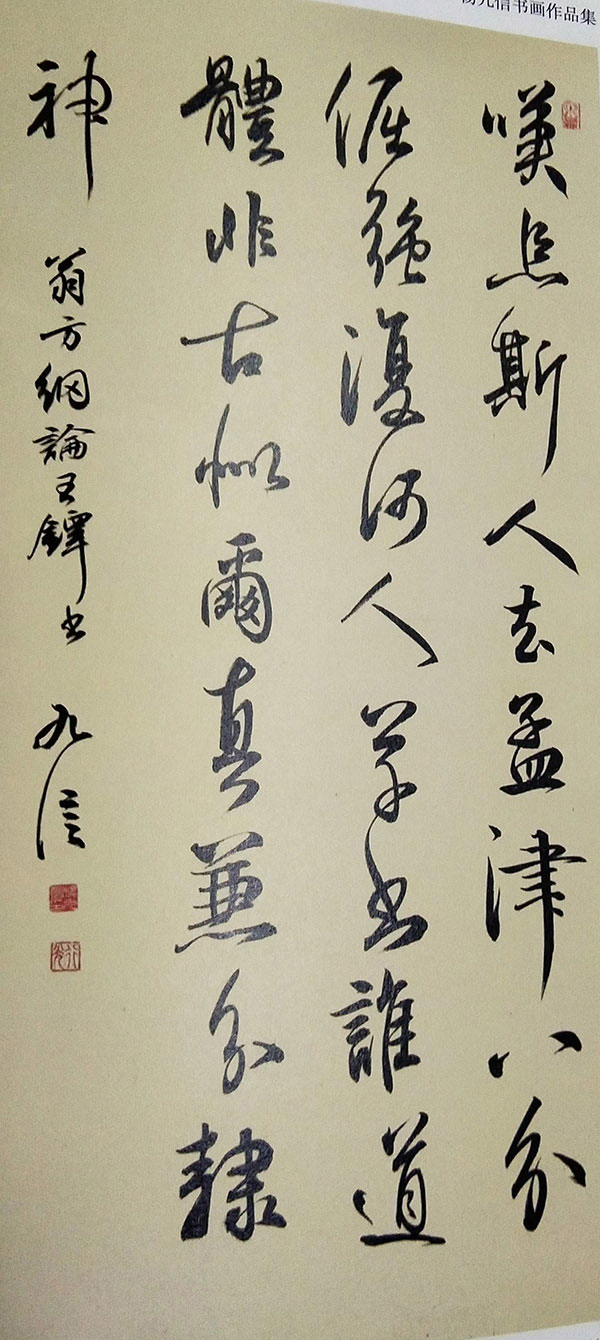 杨九信书画作品集
嘆息斯人去孟津八分
倔強復何人草書誰道
體非古似爾真兼分隸
神
翁方綱論王鐸書 九信